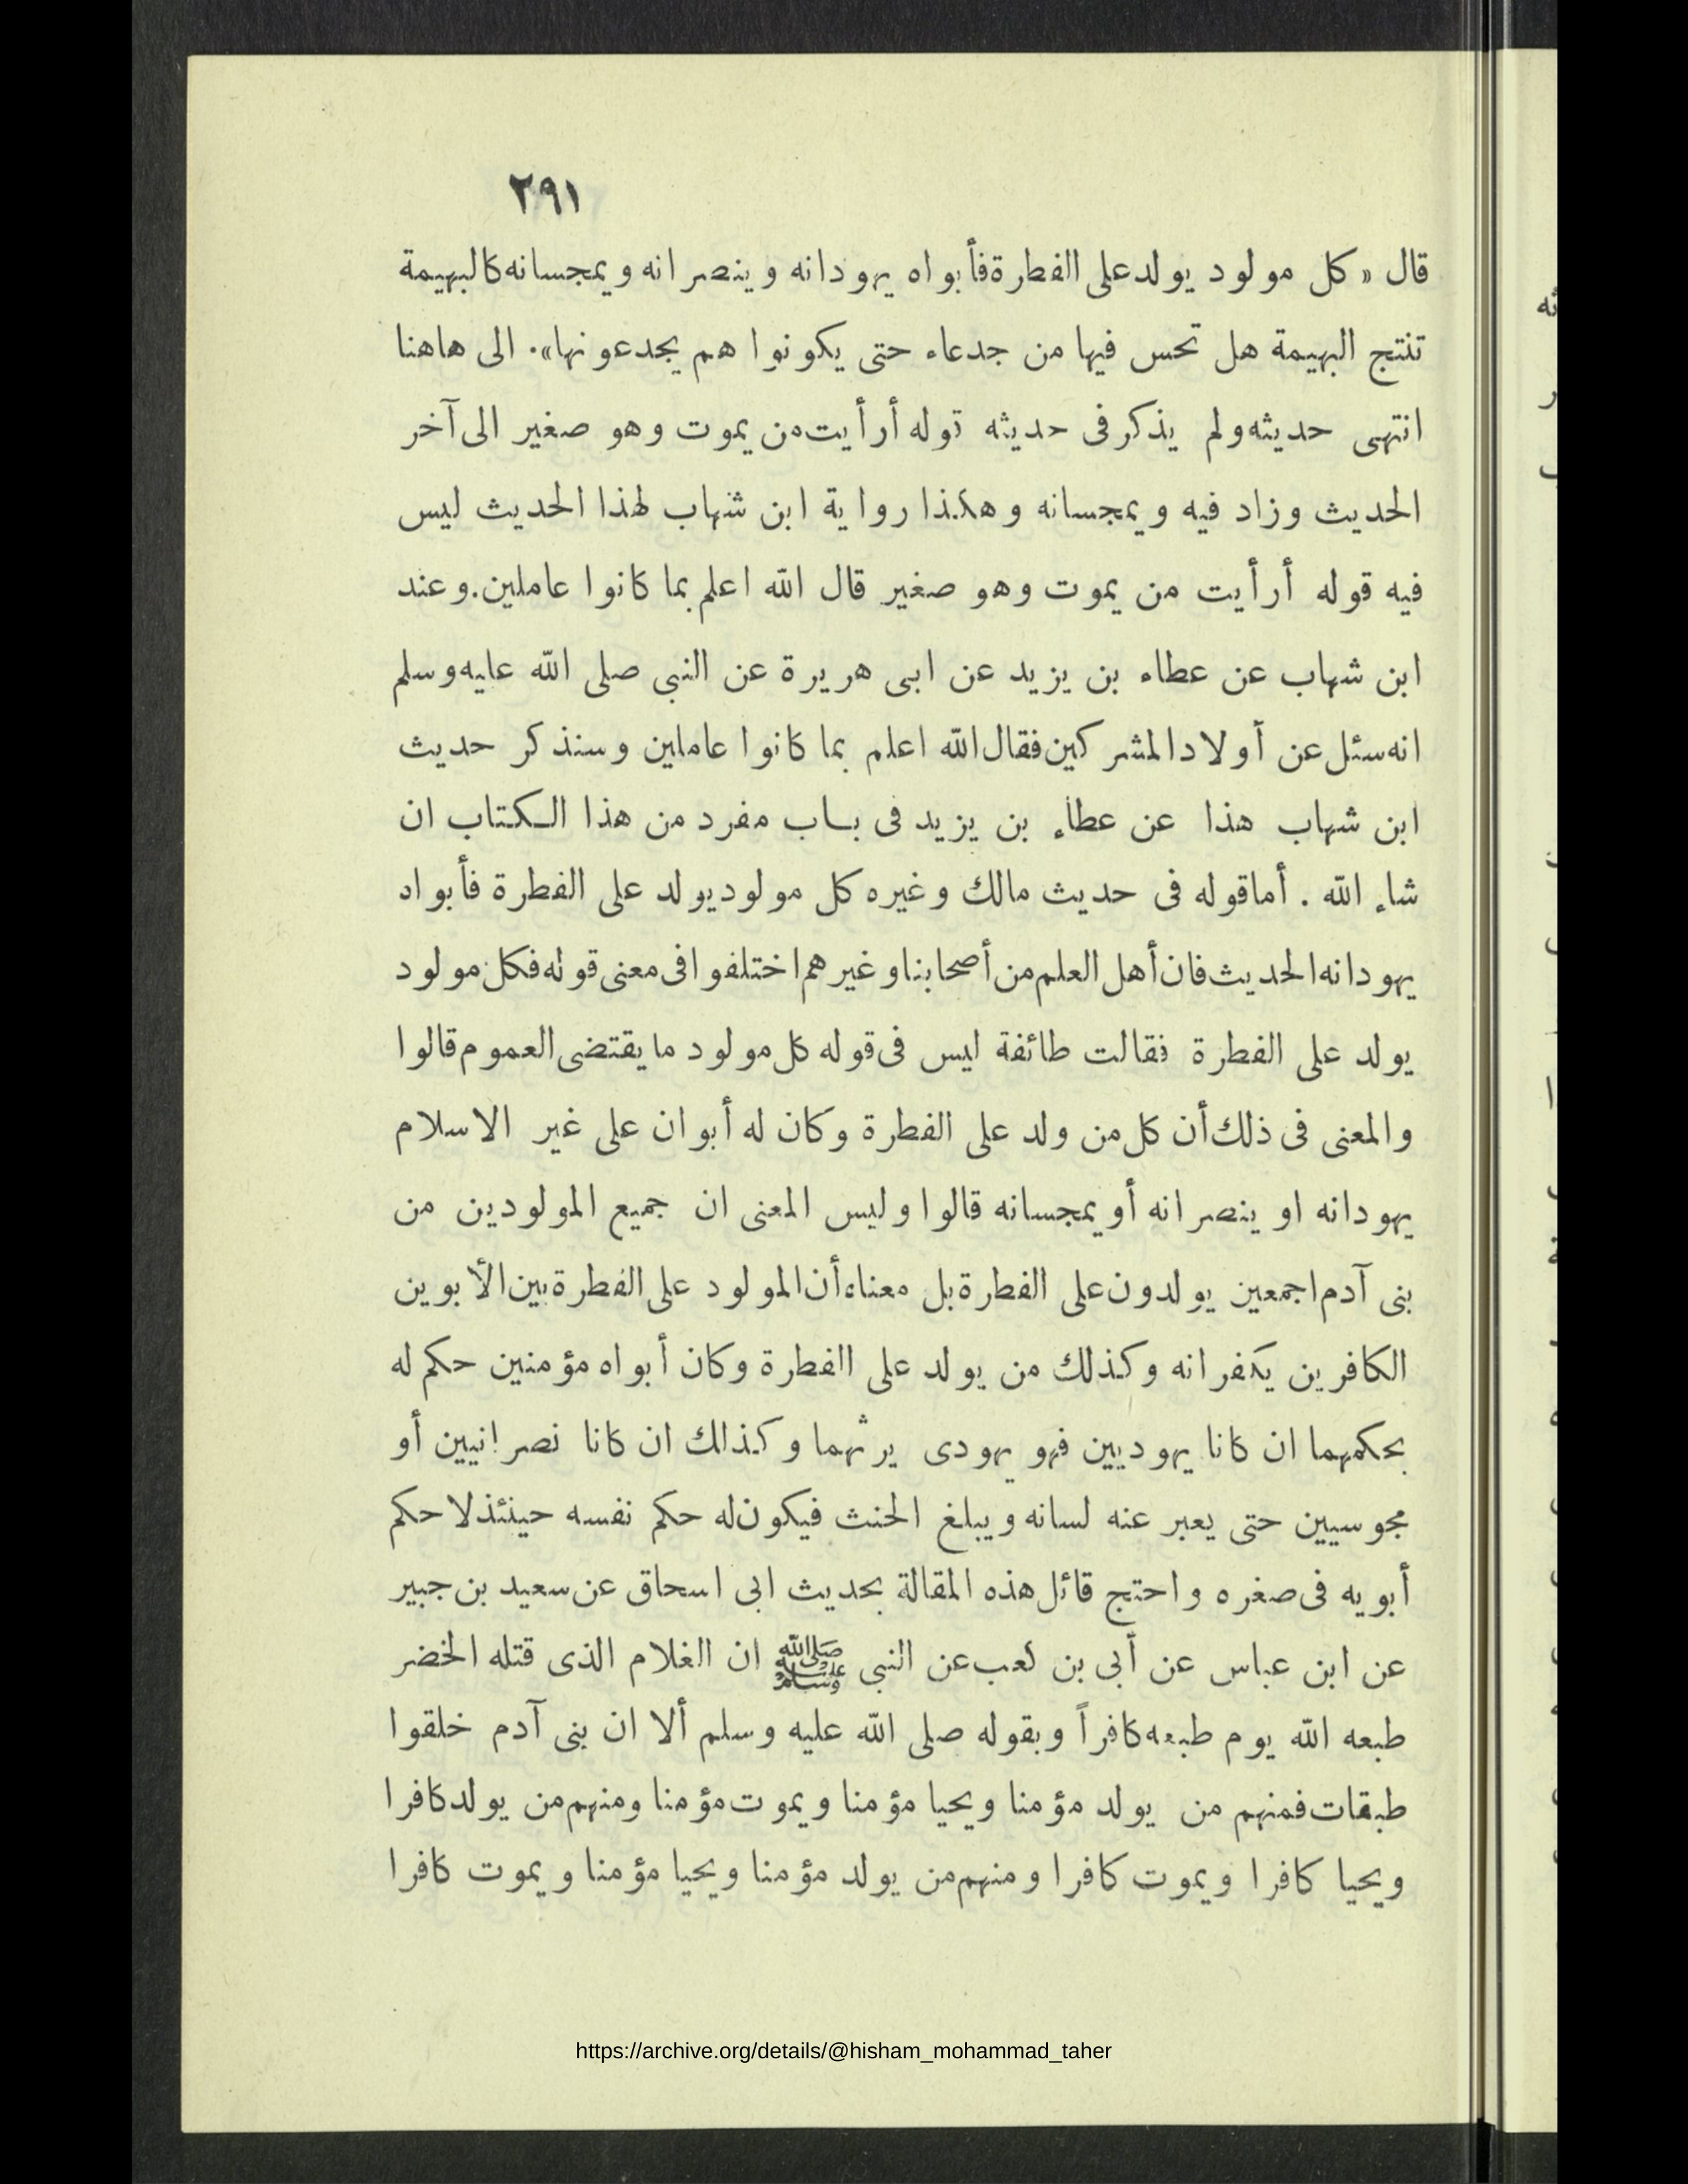 ٢٩١
قال « كل مولود يولد على الفطرة فأبواه يهودانه وينصرانه ويمجسانه كالبهيمة
تنتج البهيمة هل تحس فيها من جدعاء حتى يكونوا هم يجدعونها». الى هاهنا
انتهى حديثه ولم يذكر فى حديثه قوله أرأيت من يموت وهو صغير الى آخر
الحديث وزاد فيه ويمجسانه وهكذا رواية ابن شهاب لهذا الحديث ليس
فيه قوله أرأيت من يموت وهو صغير قال الله اعلم بما كانوا عاملين. وعند
ابن شهاب عن عطاء بن يزيد عن ابى هريرة عن النبى صلى الله عليه وسلم
انه سئل عن أولاد المشركين فقال الله اعلم بما كانوا عاملين وسنذكر حديث
ابن شهاب هذا عن عطاء بن يزيد فى باب مفرد من هذا الكتاب ان
شاء الله . أما قوله فى حديث مالك وغيره كل مولود يولد على الفطرة فأبواه
يهودانه الحديث فان أهل العلم من أصحابنا وغيرهم اختلفوا فى معنى قوله فكل مولود
يولد على الفطرة فقالت طائفة ليس فى قوله كل مولود ما يقتضى العموم قالوا
والمعنى فى ذلك أن كل من ولد على الفطرة وكان له أبوان على غير الاسلام
يهودانه او ينصرانه أو يمجسانه قالوا وليس المعنى ان جميع المولودين من
بنى آدم اجمعين يولدون على الفطرة بل معناه أن المولود على الفطرة بين الأبوين
الكافرين يكفرانه وكذلك من يولد على الفطرة وكان أبواه مؤمنين حكم له
بحكمهما ان كانا يهوديين فهو يهودى يرثهما وكذلك ان كانا نصرانيين أو
مجوسيين حتى يعبر عنه لسانه ويبلغ الحنث فيكون له حكم نفسه حينئذ لا حكم
أبويه فى صغره واحتج قائل هذه المقالة بحديث ابى اسحاق عن سعيد بن جبير
عن ابن عباس عن أبى بن كعب عن النبى ﷺ ان الغلام الذى قتله الخضر
طبعه الله يوم طبعه كافراً وبقوله صلى الله عليه وسلم ألا ان بنى آدم خلقوا
طبقات فمنهم من يولد مؤمنا ويحيا مؤمنا ويموت مؤمنا ومنهم من يولد كافرا
ويحيا كافرا ويموت كافرا ومنهم من يولد مؤمنا ويحيا مؤمنا ويموت كافرا
https://archive.org/details/@hisham_mohammad_taher